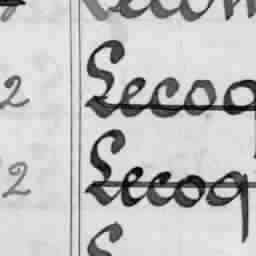 2 Lecoq
2 Lecoq